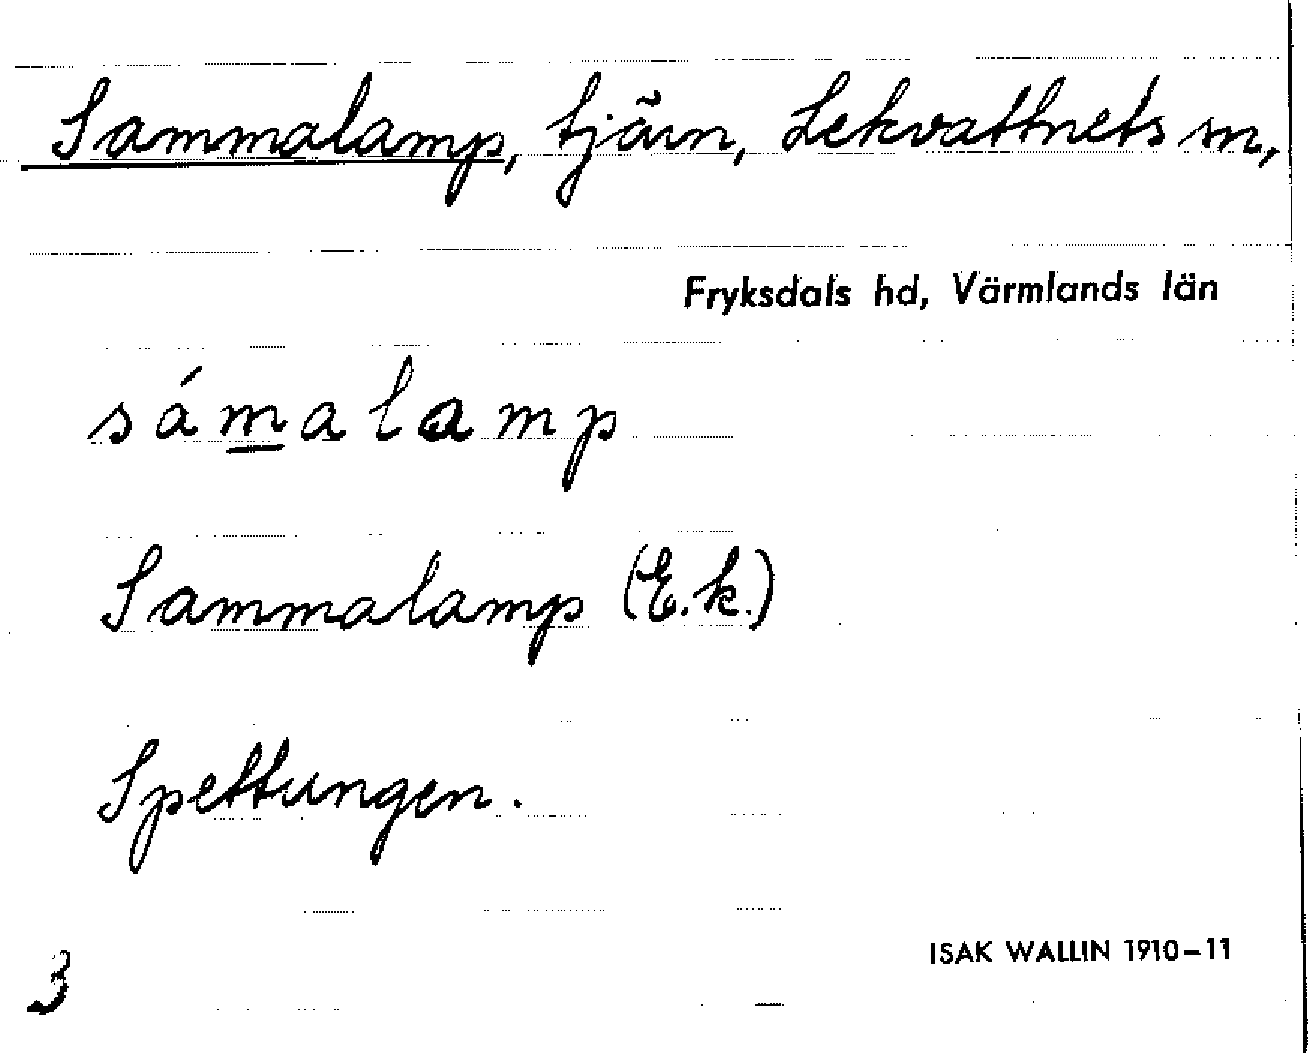 Sammalamp, tjärn, Lekvattnets sn,
Fryksdals hd, Värmlands län
sámalamp
Sammalamp (E.k.)
Spettungen.
ISAK WALLIN 1910-11
3